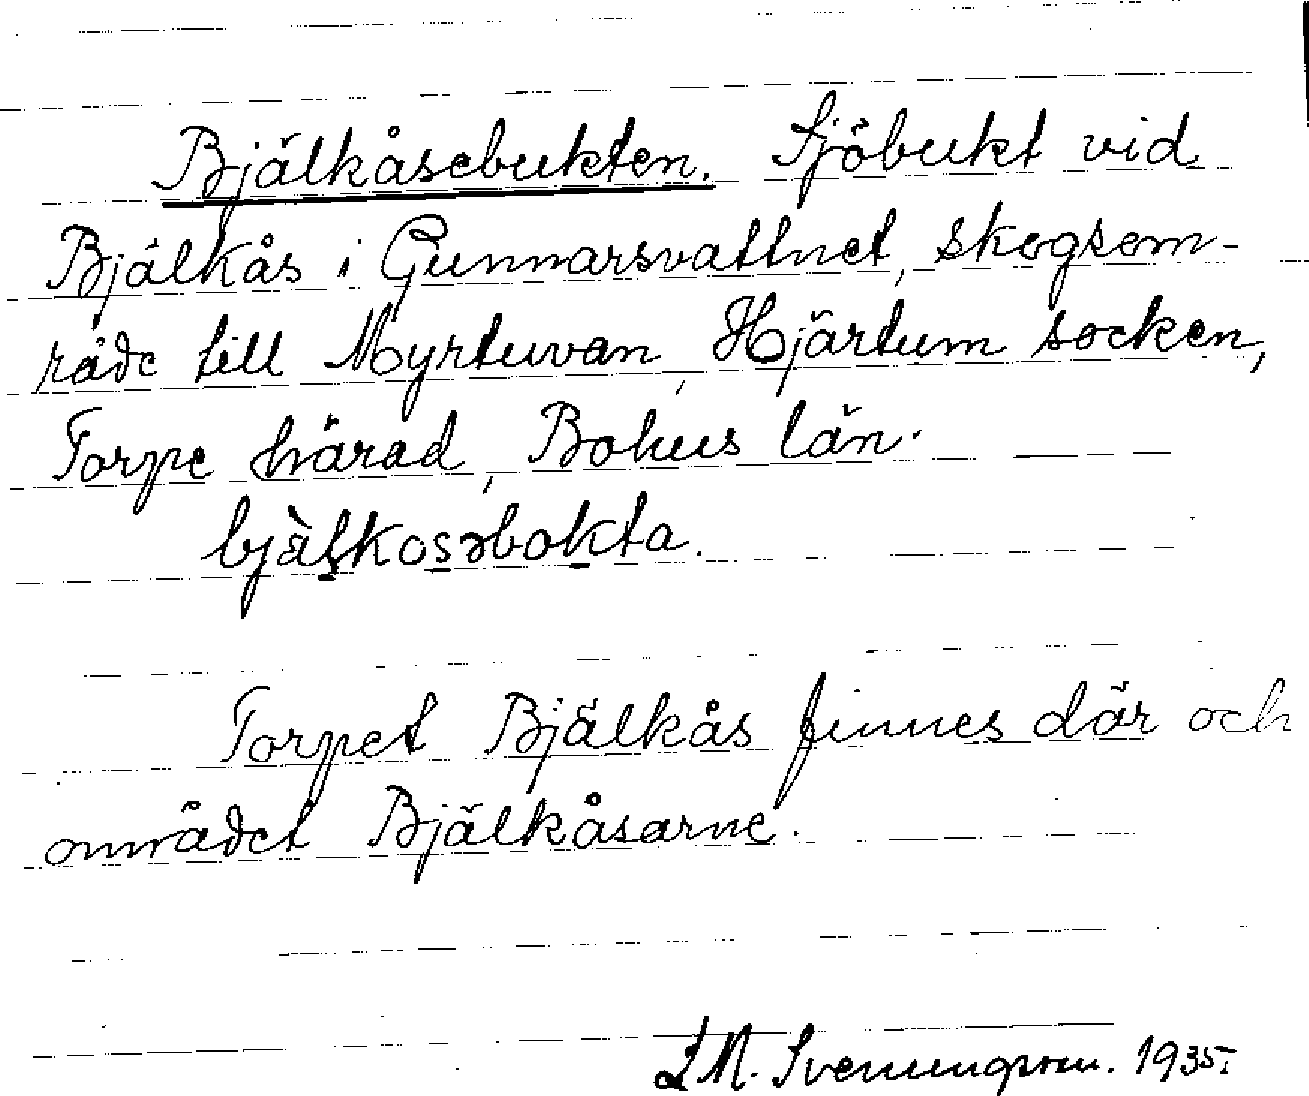 Bjälkåsebukten. Sjöbukt vid
Bjälkås i Gunnarsvattnet, skogsom-
råde till Myrtuvan, Hjärtum socken,
Torpe härad, Bohus län.
bjälkosəbokta.
Torpet Bjälkås finnes där och
området Bjälkåsarne.
L M. Svenungsson. 1935.